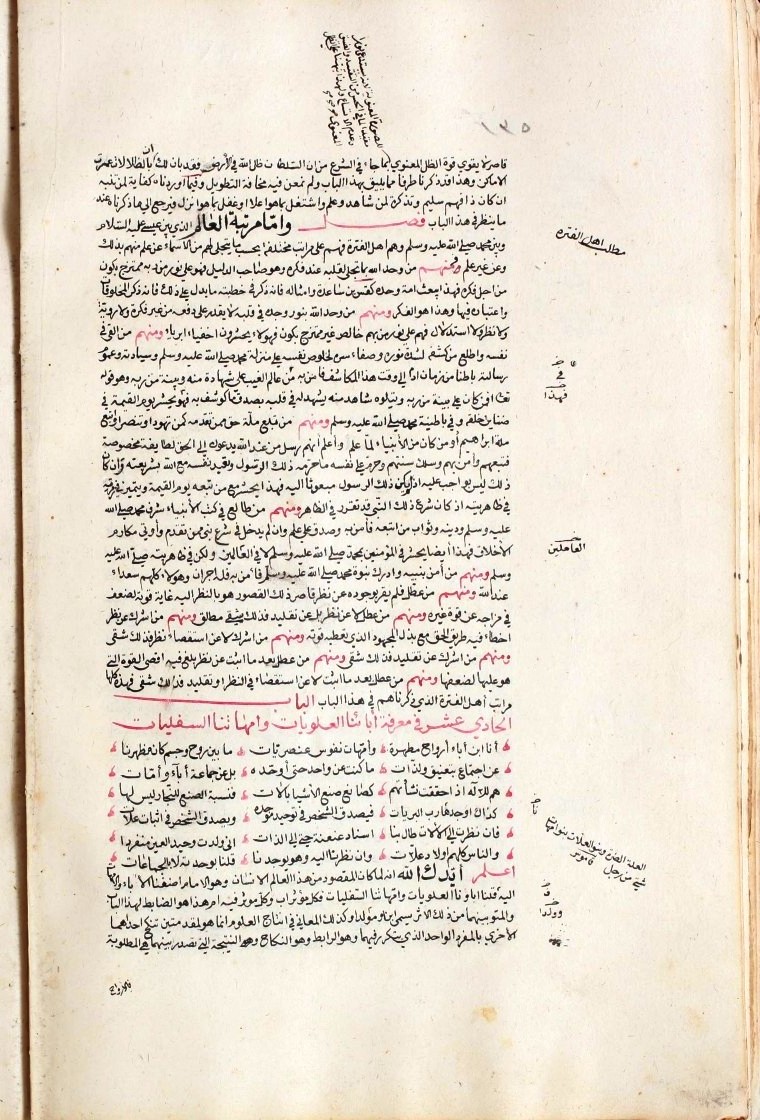 ١٣٥
قاصر لا يقوى قوة الظل المعنوي لما جاء في الشرع من ان السلطان ظل الله في الأرض فقد بان لك ان بالظلالات عمرت
الاماكن وهذا قد ذكرنا طرفا مما يليق بهذا الباب ولم نمعن فيه مخافة التطويل وفيما اوردناه كفاية لمن تنبه
ان كان ذا فهم سليم وتذكرة لمن شاهد وعلم واشتغل بما هو اعلا او غفل بما هو انزل فيرجع الى ما ذكرناه عند
ما ينظر في هذا الباب فصل واما مرتبة العالم الذي بين عيسى عليه السلام
وبين محمد صلى الله عليه وسلم وهم اهل الفترة فهم على مراتب مختلفة بحسب ما يتجلى لهم من الاسماء عن علم منهم بذلك
وعن غير علم فمنهم من وحد الله بما تجلى لقلبه عند فكره وهو صاحب الدليل فهو على نور من ربه ممتزج بكون
من اجل فكره فهذا يبعث امة وحده كقس بن ساعدة وامثاله فانه ذكر في خطبته ما يدل على ذلك فانه ذكر المخلوقات
واعتباره فيها وهذا هو الفكر ومنهم من وحد الله بنور وجده في قلبه لا يقدر على دفعه من غير فكرة ولا روية
ولا نظر ولا استدلال فهم على نور من ربهم خالص غير ممتزج بكون فهولاء يحشرون اخفياء ابرياء ومنهم من القي في
نفسه واطلع من كشفه لشدة نوره وصفاء سره لخلوص نفسه على منزلة محمد صلى الله عليه وسلم وسيادته وعموم
رسالته باطنا من زمان ادم الى وقت هذا المكاشف فامن به من عالم الغيب على شهادة منه وبينة من ربه وهو قوله
تعالى افمن كان على بينة من ربه ويتلوه شاهد منه يشهد له في قلبه بصدق ما كوشف به فهو يحشر يوم القيمة في
ضنائن خلقه وفي باطنية محمد صلى الله عليه وسلم ومنهم من تبع ملة حق ممن تقدمه كمن تهود او تنصر او اتبع
ملة ابراهيم او من كان من الأنبياء لما علم واعلم أنهم رسل من عند الله يدعون الى الحق لطايفة مخصوصة
فتبعهم وآمن بهم وسلك سننهم وحرم على نفسه ما حرمه ذلك الرسول وتقيد نفسه مع الله بشريعته وان كان
ذلك ليس بواجب عليه اذ لم يكن ذلك الرسول مبعوثا اليه فهذا يحشر مع من تبعه يوم القيمة ويتميز في زمرته
في ظاهريته اذ كان شرع ذلك النبي قد تقرر في الظاهر ومنهم من طالع في كتب الأنبياء شرف محمد صلى الله
عليه وسلم ودينه وثواب من اتبعه فآمن به وصدق على علم وان لم يدخل في شرع نبي ممن تقدم وأوتي مكارم
الأخلاق فهذا أيضا يحشر في المؤمنين بمحمد صلى الله عليه وسلم لا في العالمين ولكن في ظاهريته صلى الله عليه
وسلم ومنهم من آمن بنبيه وادرك نبوة محمد صلى الله عليه وسلم فآمن به فله اجران وهولاء كلهم سعداء
عند الله ومنهم من عطل فلم يقر بوجوده عن نظر قاصر ذلك القصور هو بالنظر اليه غاية قوته لضعف
في مزاجه عن قوة غيره ومنهم من عطل لا عن نظر بل عن تقليد فذلك شقي مطلق ومنهم من اشرك عن نظر
اخطأ فيه طريق الحق مع بذل المجهود الذي تعطيه قوته ومنهم من اشرك لا عن استقصاء نظر فذلك شقي
ومنهم من اشرك عن تقليد فذلك شقي ومنهم من عطل بعد ما اثبت عن نظر بلغ فيه اقصى القوة التي
هو عليها لضعفها ومنهم من عطل بعد ما اثبت لا عن استقصاء في النظر او تقليد فذلك شقي فهذه كلها
مراتب أهل الفترة الذي ذكرناهم في هذا الباب الباب
الحادي عشر في معرفة أبائنا العلويات وامهاتنا السفليات
أنا ابن أباء أرواح مطهرة وأمهات نفوس عنصريات ما بين روح وجسم كان مظهرنا
عن اجتماع بتعنيق ولذات ما كنت عن واحد حتى أوحده بل عن جماعة أباء وأمات
هم للاله اذا حققت شأنهم كصانع صنع الأشيا بالات فنسبة الصنع للنجار ليس لها
كذاك اوجدنا رب البريات فيصدق الشخص في توحيد موجده ويصدق الشخص في اثبات علات
فان نظرت الى الالات طال بنا اسناد عنعنة حتى الى الذات وان نظرت اليه وهو يوجدنا قلنا بوحدته لا بالجماعات
انى ولدت وحيد العين منفردا والناس كلهم اولاد علات
اعلم أيدك الله انه لما كان المقصود من هذا العالم الانسان وهو الامام لهذا اضفنا الأباء والأمهات
اليه فقلنا اباؤنا العلويات وامهاتنا السفليات فكل مؤثر اب وكل مؤثر فيه ام هذا هو الضابط لهذا الباب
والمتولد بينهما من ذلك الأثر يسمى ابنا ومولدا وكذلك المعاني في انتاج العلوم انما هو بمقدمتين تنكح احداهما
الأخرى بالمفرد الواحد الذي يتكرر فيهما وهو الرابط وهو النكاح وهو النتيجة التي تصدر بينهما هي المطلوبة
فالارواح
مطلب اهل الفترة
فهذا
العاملين
العلة الضرة وبنو العلات بنو امهات
شتى من رجل قاموس
وولدا